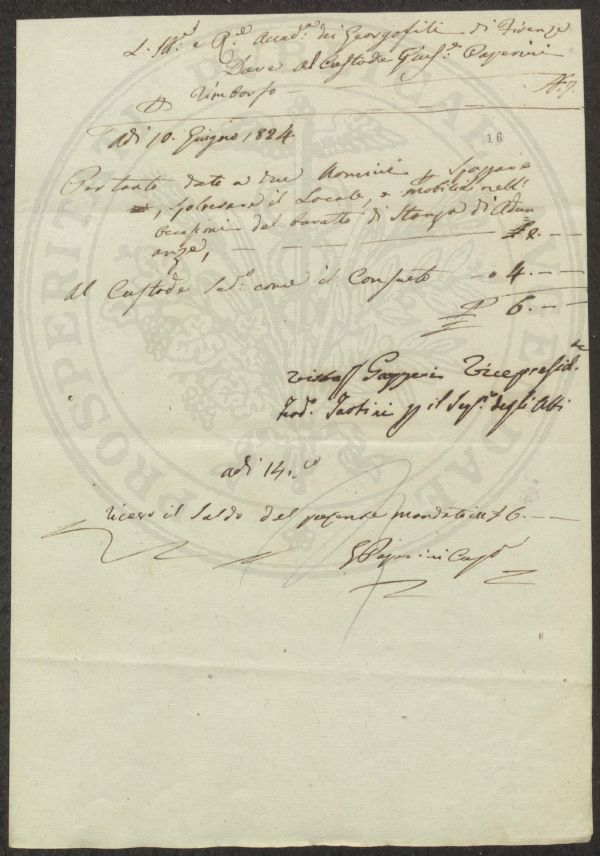 L. Ill.e e R.e Accad.a dei Georgofili di Firenze
Deve al Custode Gius.e Paperini
Rimborso
Adi 10. Giugno 1824
16
Per tanto dato a due Uomini p Spazzare
, spolverare il Locale, e mobilia nell'
occasione del baratto di Stanza di Adun
anze, £ 2.
Al Custode Sud.o come il Consueto 4.
£ 6.
Visto Gazzeri Vicepresid.te
Ferd. Tartini p il Seg.o degli Atti
adi 14. do
ricevo il Saldo del presente mandato in £ 6.
G Paperini Cust.e
PROSPERITATI PUBLICAE AUGENDAE